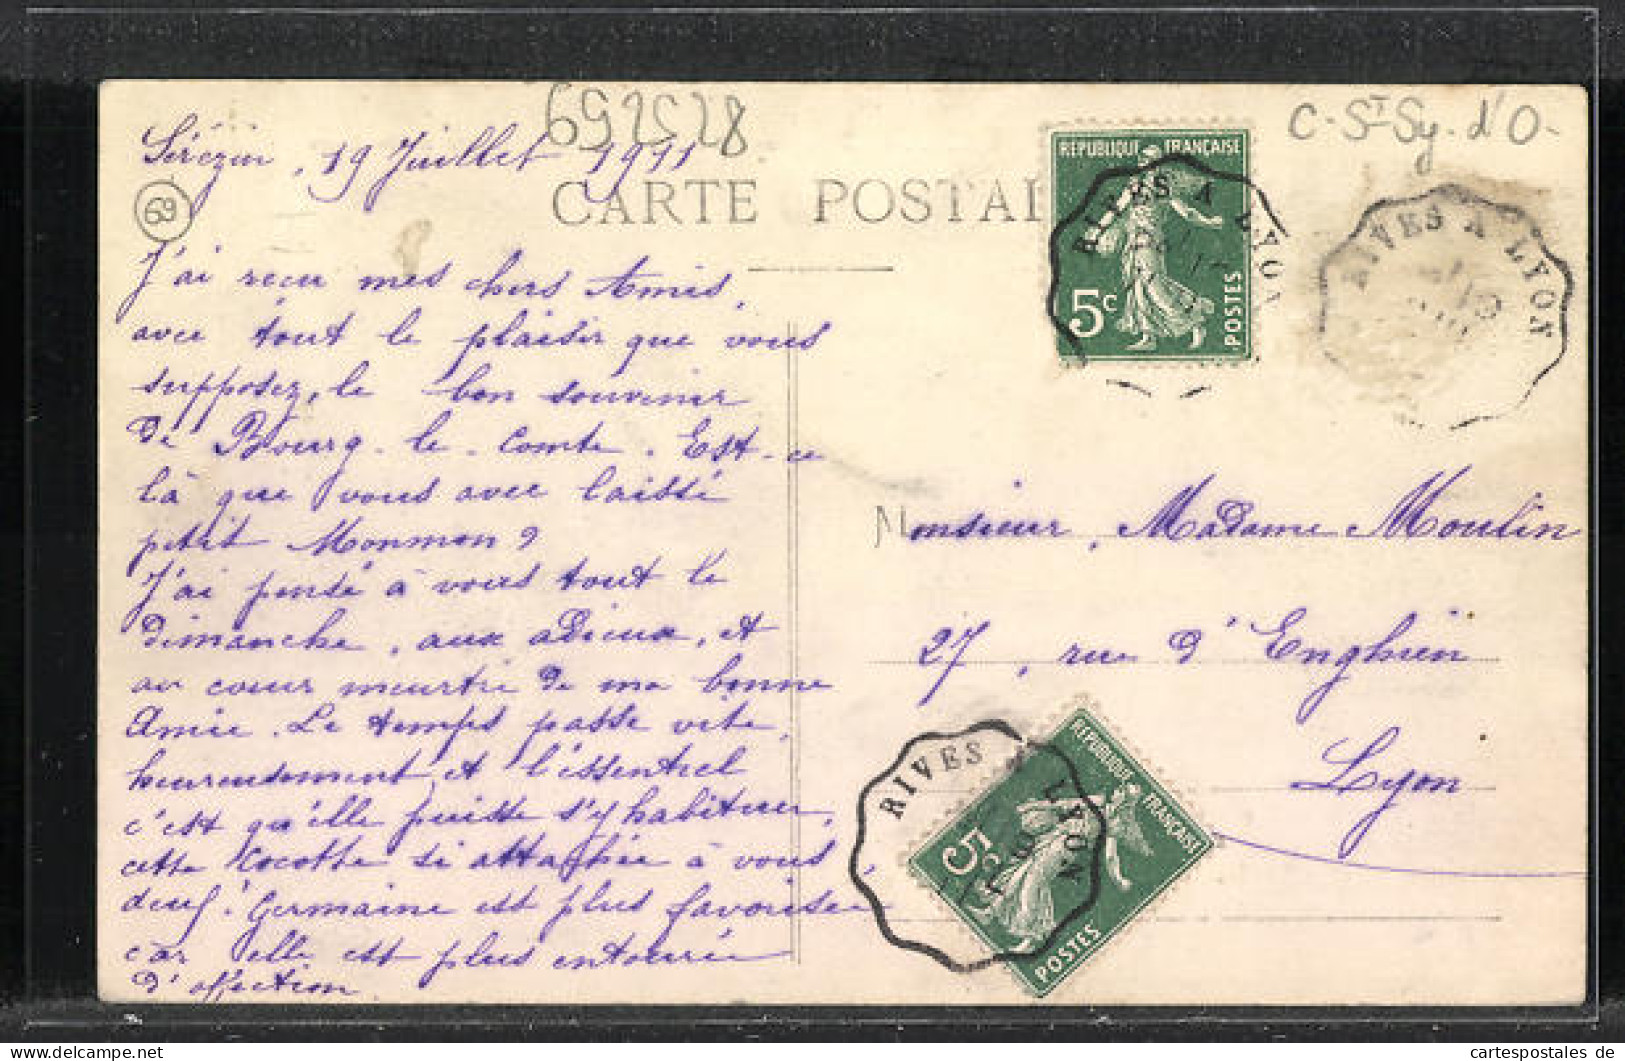 692528
C-St Sy. d'O-
Sérézin, 19 Juillet 1911
69
CARTE POSTAL
RÉPUBLIQUE FRANÇAISE
5c
POSTES
RIVES A LYON
RIVES A LYON
J'ai reçu mes chers Amis,
avec tout le plaisir que vous
supposez, le bon souvenir
de Bourg-le-Comte. Est-ce
là que vous avec laissé
petit Monmon?
J'ai pensé à vous tout le
dimanche, aux adieux, et
au cœur meurtri de ma bonne
Amie. Le temps passe vite,
heureusement, et l'essentiel
c'est qu'elle puisse s'y habituer,
cette Cocotte si attachée à vous
deux. Germaine est plus favorisée
car elle est plus entourée
d'affection.
Monsieur, Madame Moulin
27, rue d'Enghien
Lyon
RIVES LYON
RÉPUBLIQUE FRANÇAISE
5c
POSTES
cartespostales de